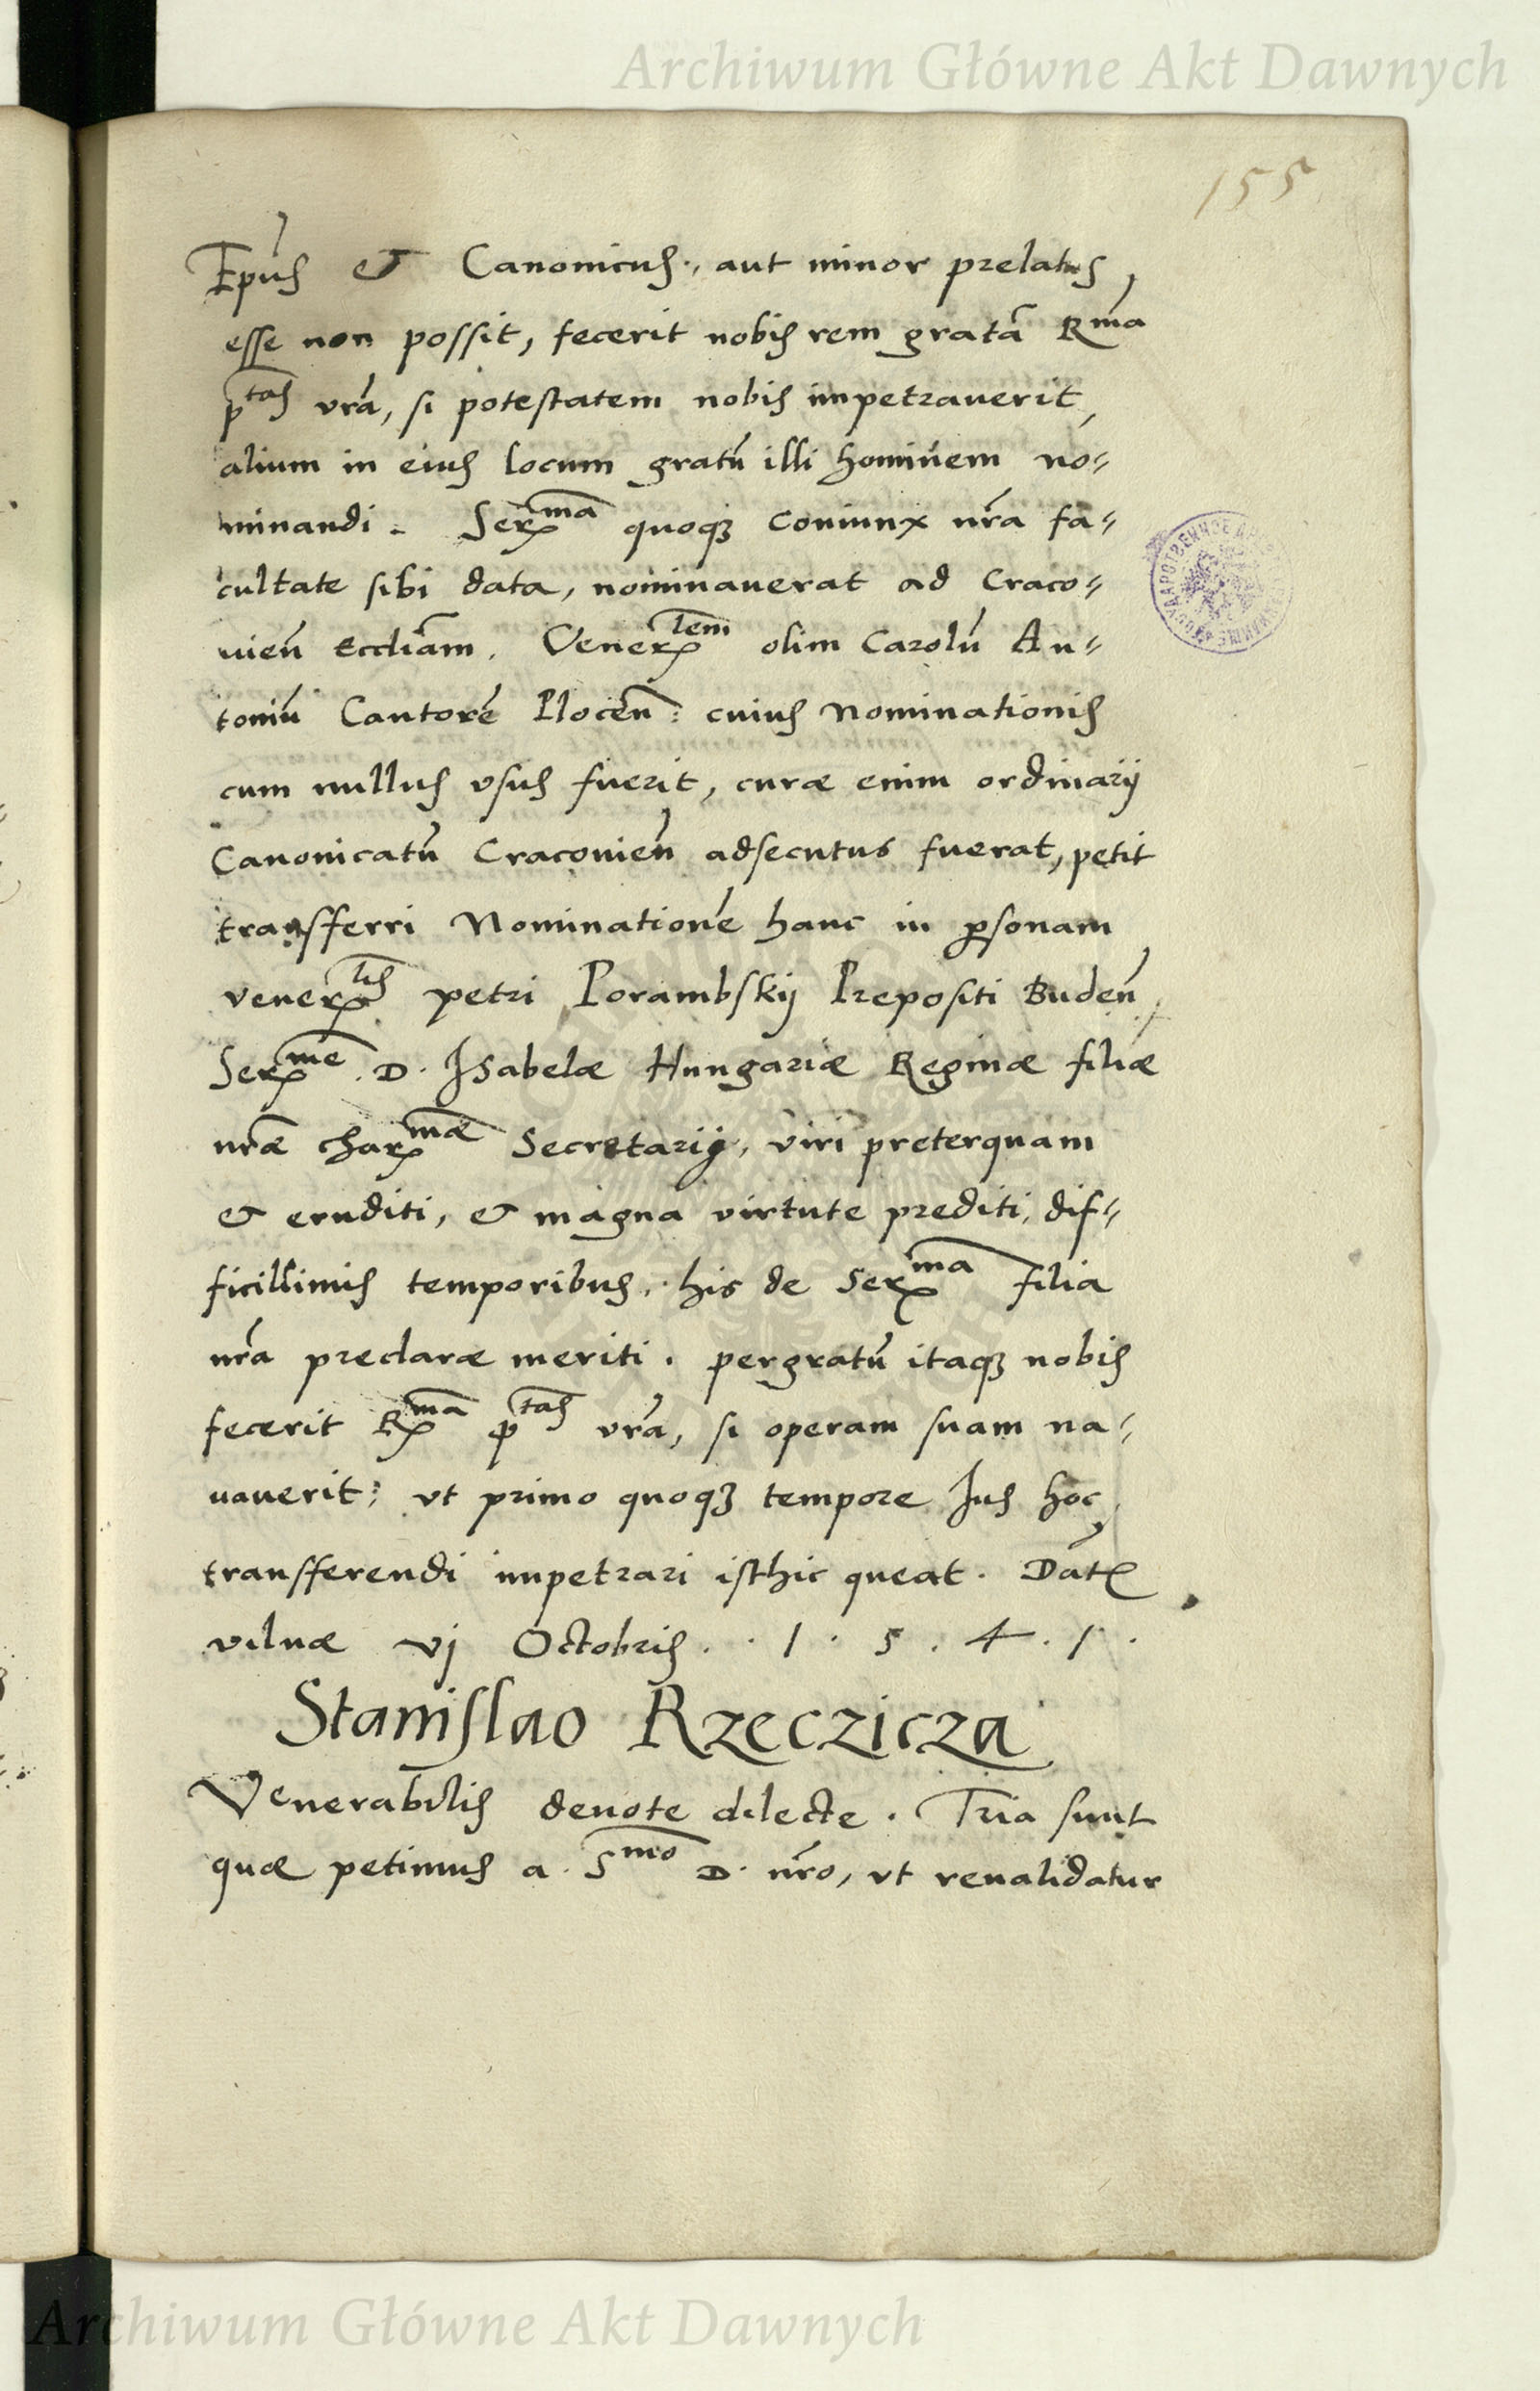 Archiwum Główne Akt Dawnych
155
Ep̄us & Canonicus, aut minor prelatus
esse non possit, fecerit nobis rem gratā Rma
ptas vrā, si potestatem nobis impetrauerit
alium in eius locum gratū illi hominem no=
minandi. Serma quoqꝫ Coniunx nrā fa=
cultate sibi data, nominauerat ad Craco=
uień Eccliām. Venerlem olim Carolū An=
toniū Cantorē Ploceń: cuius Nominationis
cum nullus vsus fuerit, curæ enim ordinarij
Canonicatū Cracouień adsecutus fuerat, petit
transferri Nominationē hanc in ꝑsonam
venerlis petri Porambskij Prepositi Budeń
Serme D. Isabelæ Hungariæ Reginæ filiæ
nrǣ charmæ Secretarij, viri preterquam
& eruditi, & magna virtute prediti, dif=
ficillimis temporibus his de Serma filia
nrā preclaræ meriti. pergratū itaqꝫ nobis
fecerit Rma ptas vrā, si operam suam na=
uauerit: vt primo quoqꝫ tempore Jus hoc
transferendi impetrari isthic queat. Dat
vilnæ vj Octobris. 1.5.4.1.
Stanislao Rzeczicza
Venerabilis deuote dilecte. Tria sunt
quæ petimus a Smo D. nrō, vt reualidatur
Archiwum Główne Akt Dawnych